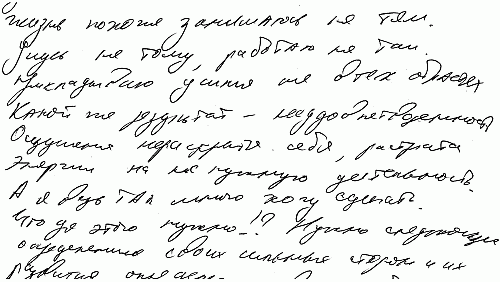 Жизнь похожа занимаюсь не тем.
Учусь не тому, работаю не там.
Прикладываю усилия не в тех областях
Какой же результат - неудовлетворенность
Ощущение нераскрытия себя, растрата
Энергии на не нужную деятельность.
А я ведь так много хочу сделать.
Что для этого нужно_!? Нужно следующее
определению своих сильных сторон и их
развития